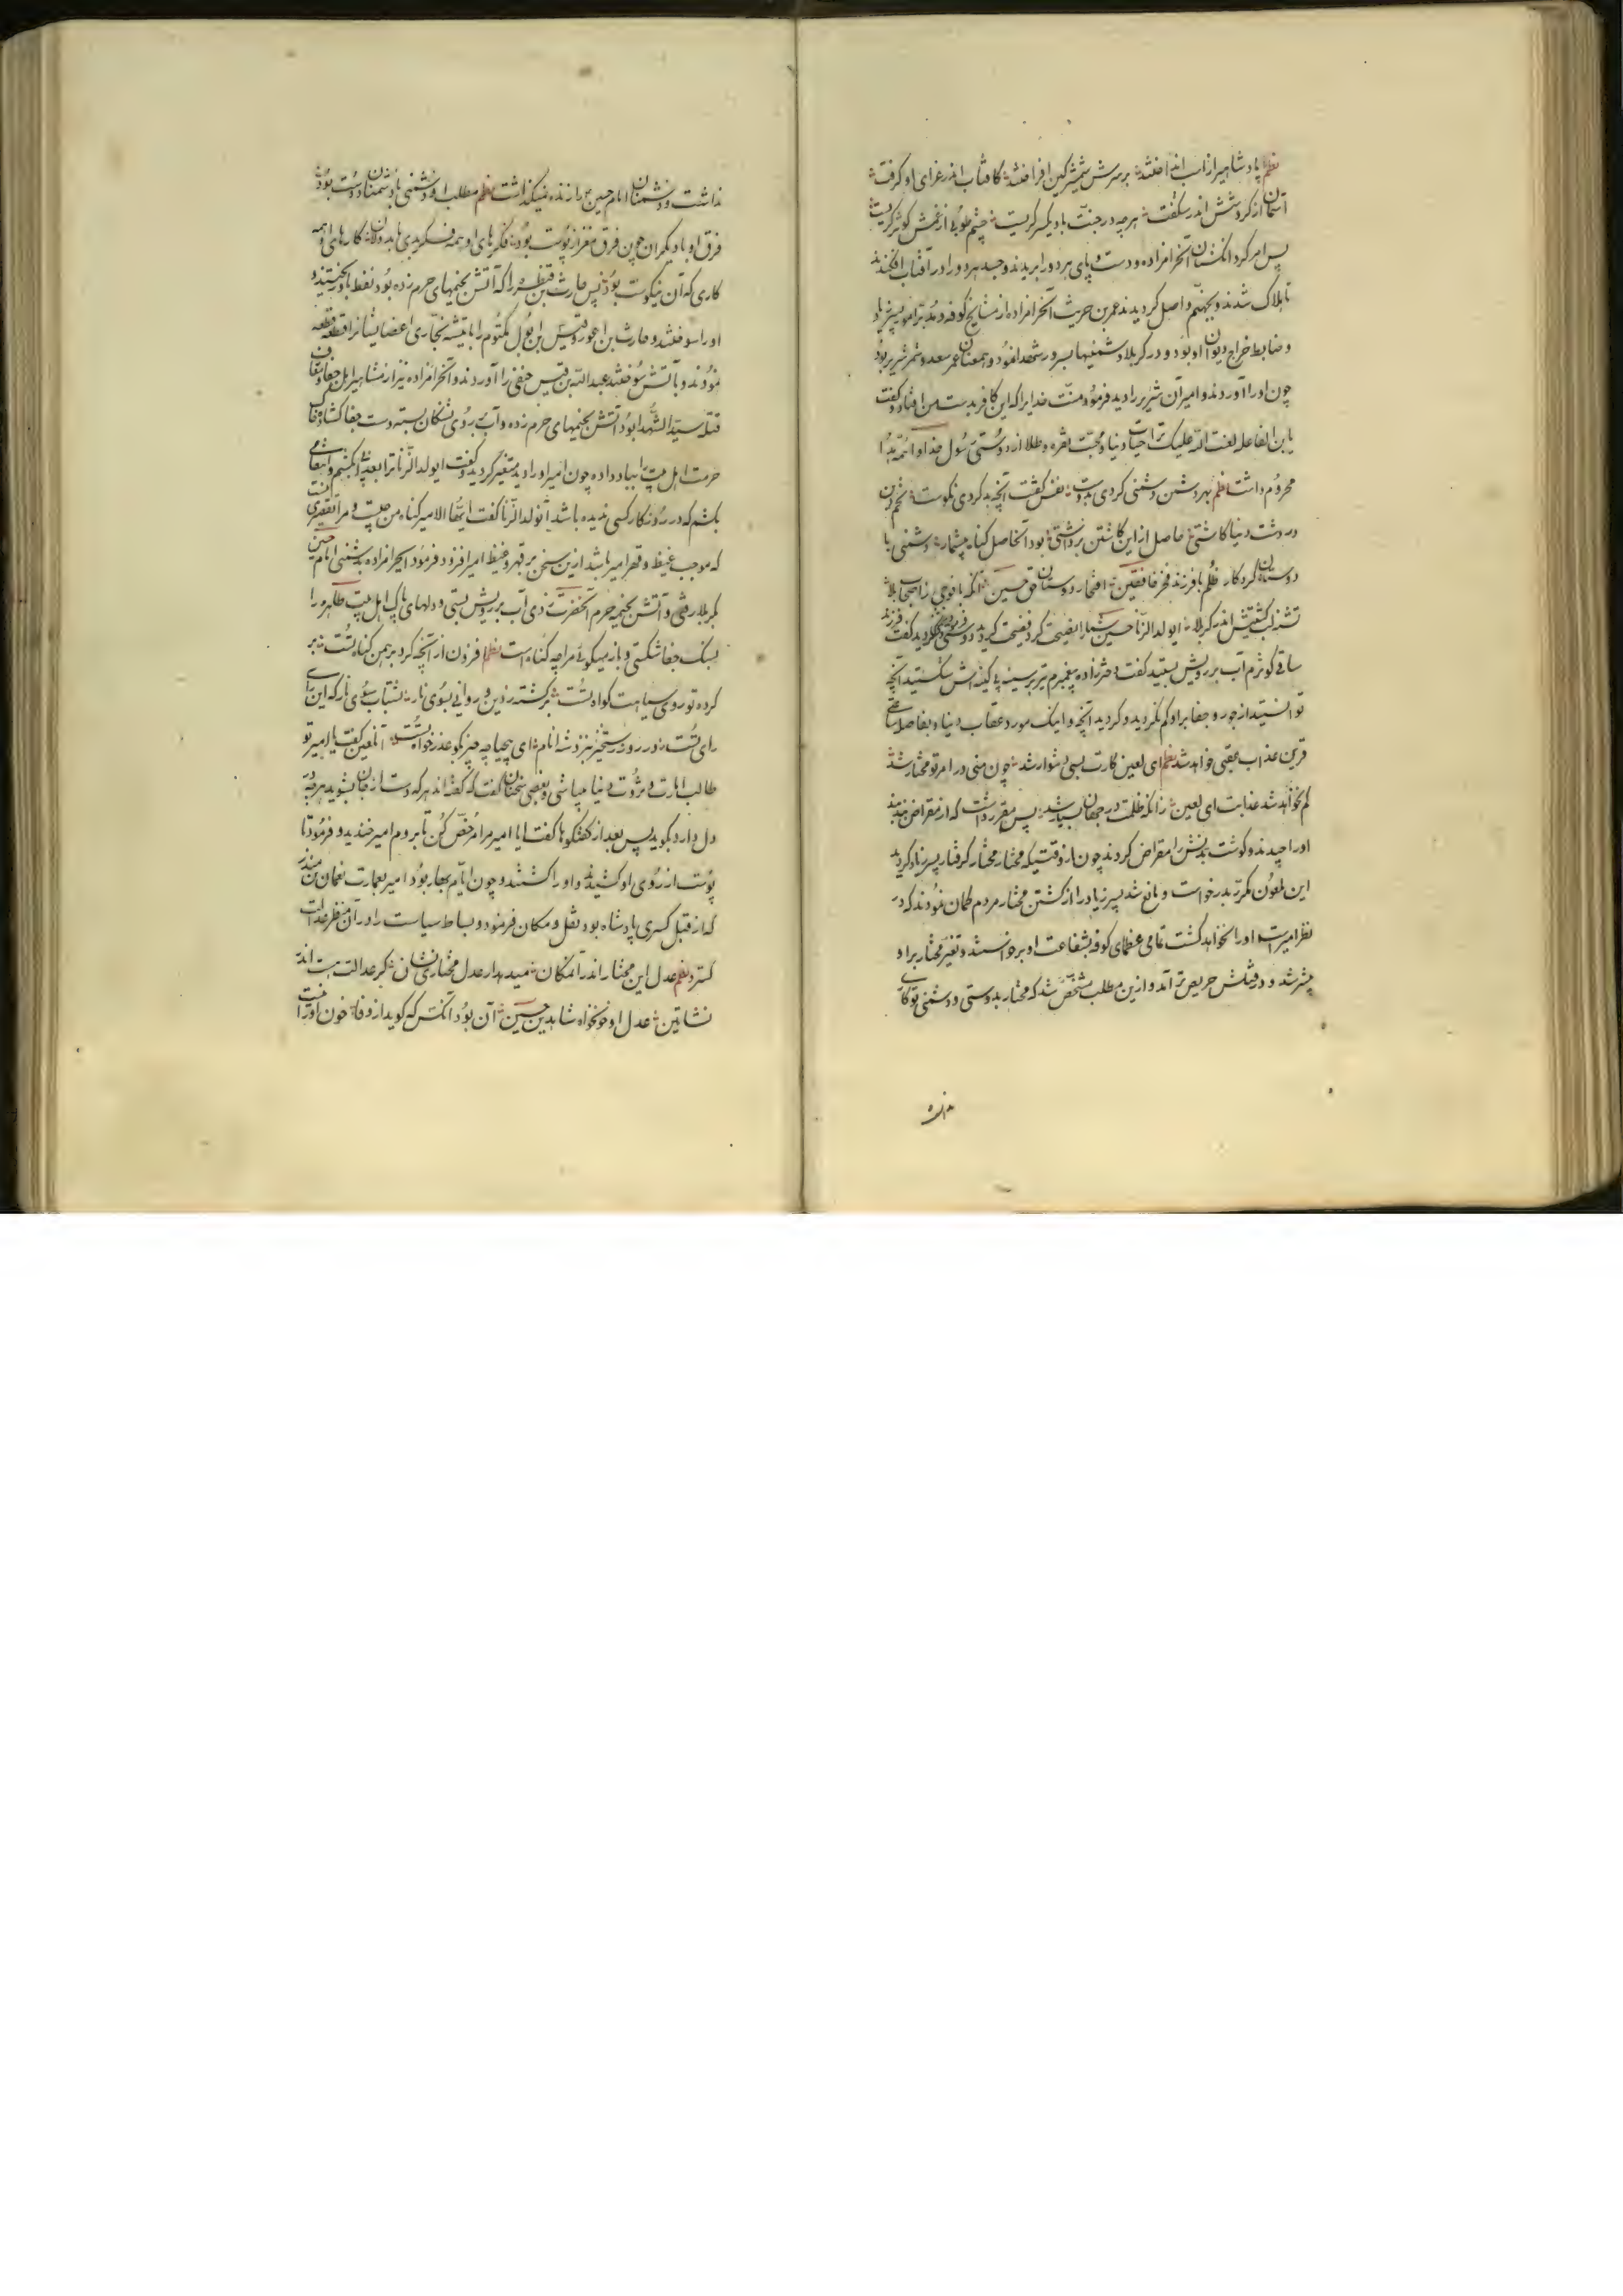 نظم پادشاهیرا ز اب انداختند بر سرش شمشیر کین افراختند کافتاب اندر عزای او گرفت
آسمان از گردشش اندر شگفت هرچه در جنت بادیکسر گریست چشم طوبی از غمش کوثر گریست
پس امر کرد انگشتان آنحرامزاده و دست و پای هر دو را بریدند و جسد هر دو را در آفتاب افکندند
تا هلاک شدند و بجهنم واصل گردیدند عمر بن حریث آنحرامزاده از مشایخ کوفه و مدبر امور پسر زیاد
و ضابط خراج و دیوان او بود و در کربلا دشمنیها بسرور شهدا نمود و همعنان عمر سعد و شمر شریر بود
چون او را آوردند و امیر آن شریر را دید فرمود منت خدایرا که این کافر بدست من افتاد و گفت
یابن الفاعله لعنت الله علیک ترا حیات دنیا و محبت نقره و طلا از دوستی رسول خدا و ائمه هدا
محروم داشت نظم بهر دشمن دشمنی کردی بدوست نفس گفت آنچه بد کردی نکوست تخم دین
در دشت دنیا کاشتی حاصل از این کاشتن برداشتی بود آنحاصل گناه بیشمار دشمنی با
دوستان کردگار ظلم با فرزند فخر خافقین افتخار دوستان حق حسین آنکه با فوجی ز اصحاب بلا
تشنه لب کشتیش اندر کربلا ایولد الزنا حسین شما را نصیحت کرد فضیحت کردید و دوستی فرمود دشمنی کردید گفت فرزند
ساقی کوثرم آب بر رویش بستید گفت دخترزاده پیغمبرم تیر بر سینه پاکینه اش شکستید آنچه
توانستید از جور و جفا بر او کم نکردید و کردید آنچه و اینک مورد عقاب دنیا و بفاصله ساعتی
قرین عذاب عقبی خواهد شد نظم ای لعین کارت بسی دشوار شد چون منی در امر تو مختار شد
کم نخواهد شد عذابت ای لعین زانکه ظلمت در جهان بسیار شد پس مقرر داشت که از مقراض بدن
او را چیدند و گوشت بدنش را مقراض کردند چون از وقتیکه مختار گرفتار پسر زیاد گردید
این ملعون مکرر بدرخواست و مانع شد پسر زیاد را از کشتن مختار مردم گمان نمودند که در
نظر امیر است او را نخواهد کشت تمامی عظمای کوفه بشفاعت او برخواستند و تغیر مختار بر او
بیشتر شد و در قتلش حریص تر آمد و ازین مطلب مشخص شد که مختار بدوستی و دشمنی تو کاری
نداشت و دشمنان امام حسین را زنده نمیگذاشت نظم مطلب او دشمنی با دشمنان دوست بود
فرق او با دیگران چون فرق مغز از پوست بود فکرهای او همه فکر بدی با بدولان کارهای او همه
کاری که آن نیکوست بود پس حارث بن قنظر را که آتش بخیمهای حرم زده بود نفط باو ریختند و
او را سوختند و حارث بن اعور و قیس بن ابول مکتوم را با تیشه نجاری اعضایشانرا قطعه قطعه
نمودند و بآتش سوختند عبدالله بن قیس حنفی را آوردند و آنحرامزاده نیز از مشاهیر اهل جفا و نفاق
قتله سیدالشهدا بود آتش بخیمهای حرم زده و آب بروی تشنگان بسته دست جفا گشاده و خاک
حرمت اهل بیت را بباد داده چون امیر او را دید متغیر گردید و گفت ایولد الزنا ترا بعذابی بکشم و انتقامی
بکشم که در روزگار کسی ندیده باشد آنولدالزنا گفت ایها الامیر گناه من چیست و مرا تقصیری
که موجب غیظ و قهر امیر باشد ازین سخن بر قهر و غیظ امیر افزود و فرمود ایحرامزاده بدشمنی امام حسین
بکربلا رفتی و آتش بخیمه حرم آنحضرت زدی آب بر رویش بستی و دلهای پاک اهل بیت طاهره را
بسنگ جفا شکستی و باز میگوئی مرا چه گناه است نظم افزون از آنچه کرد بر من گناه تست بر
کرده تو روی سیاهت گواه تست برگشته ز دین و روانی بسوی نار بشتاب سوی نار که این رای
رای تست در روز رستخیز بنزد شه انام ای بیحیا چه چیز بگو عذرخواه تست آنلعین گفت یا امیر تو
طالب امارت و ثروت دنیا میباشی و بعضی سخنان گفت که گفته اند هر که دست از جان بشوید هرچه در
دل دارد بگوید پس بعد از گفتگوها گفت ایا امیر مرا مرخص کن تا بروم امیر خندید و فرمود تا
پوست از روی او کشیدند و او را کشتند و چون ایام بهار بود امیر بعمارت نعمان بن منذر
که از قبل کسری پادشاه بود نقل و مکان فرمود و بساط سیاست را در آن منظر عدالت
گسترد نظم عدل این مختار اندر آنمکان میدهد از عدل مختاری نشان گر عدالت هست اندر
نشاتین عدل او خونخواه شاهد بن حسین آن بود آنکس که گوید از وفا خون او را